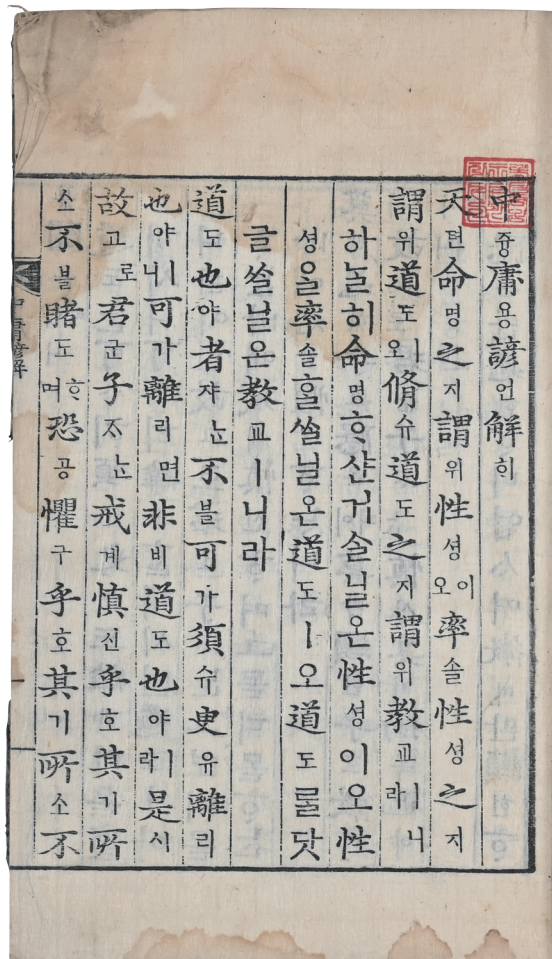 中즁庸용諺언解ᄒᆡ
天텬命명之지謂위性셩이오率솔性셩之지
謂위道도ㅣ오脩슈道도之지謂위敎교ㅣ니라
하ᄂᆞᆯ히命명ᄒᆞ샨거슬닐온性셩이오性
셩을率솔ᄒᆞᆯᄊᆞᆯ닐온道도ㅣ오道도ᄅᆞᆯ닷
글ᄊᆞᆯ닐온敎교ㅣ니라
道도也야者쟈ᄂᆞᆫ不블可가須슈臾유離리
也야ㅣ니可가離리면非비道도也야ㅣ라是시
故고로君군子ᄌᆞᄂᆞᆫ戒계愼신乎호其기所
소不블睹도ᄒᆞ며恐공懼구乎호其기所소不
中庸諺解